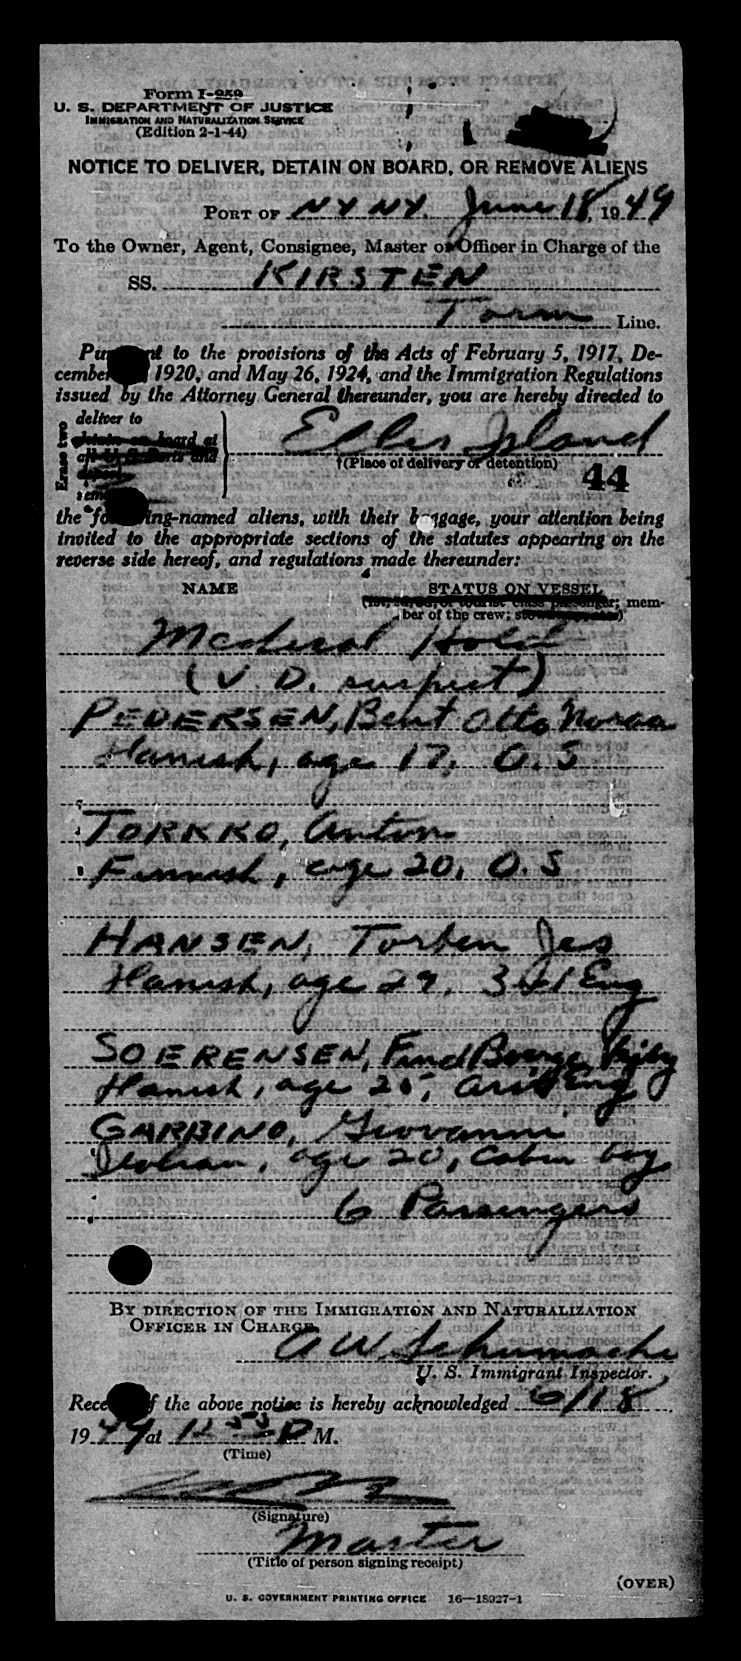 Form I-259
U. S. DEPARTMENT OF JUSTICE
IMMIGRATION AND NATURALIZATION SERVICE
(Edition 2-1-44)
NOTICE TO DELIVER, DETAIN ON BOARD, OR REMOVE ALIENS
PORT OF NY NY. June 18, 1949
To the Owner, Agent, Consignee, Master or Officer in Charge of the
SS. KIRSTEN
Torm Line.
to the provisions of the Acts of February 5, 1917, De-
cember 1920, and May 26, 1924, and the Immigration Regulations
issued by the Attorney General thereunder, you are hereby directed to
Erase two
deliver to
Ellis Island
†(Place of delivery or detention)
44
the following-named aliens, with their baggage, your attention being
invited to the appropriate sections of the statutes appearing on the
reverse side hereof, and regulations made thereunder:
NAME STATUS ON VESSEL
mem-
ber of the crew;
Medical Hold
(V. D. suspect)
PEDERSEN, Bent Otto
Danish, age 17, O.S
TORKKO, Anton
Finnish, age 20, O.S
HANSEN, Torben Jes
Danish, age 29, 3rd Eng
SOERENSEN, Boerge
Danish, age 25, Asst Eng
GARBINO, Giovanni
Italian, age 20, Cabin boy
6 Passengers
BY DIRECTION OF THE IMMIGRATION AND NATURALIZATION
OFFICER IN CHARGE
A W Schumacher
U. S. Immigrant Inspector.
Receipt of the above notice is hereby acknowledged 6/18,
1949 at 12 55 P M.
(Time)
(Signature)
Master
(Title of person signing receipt)
(OVER)
U. S. GOVERNMENT PRINTING OFFICE 16—18027-1